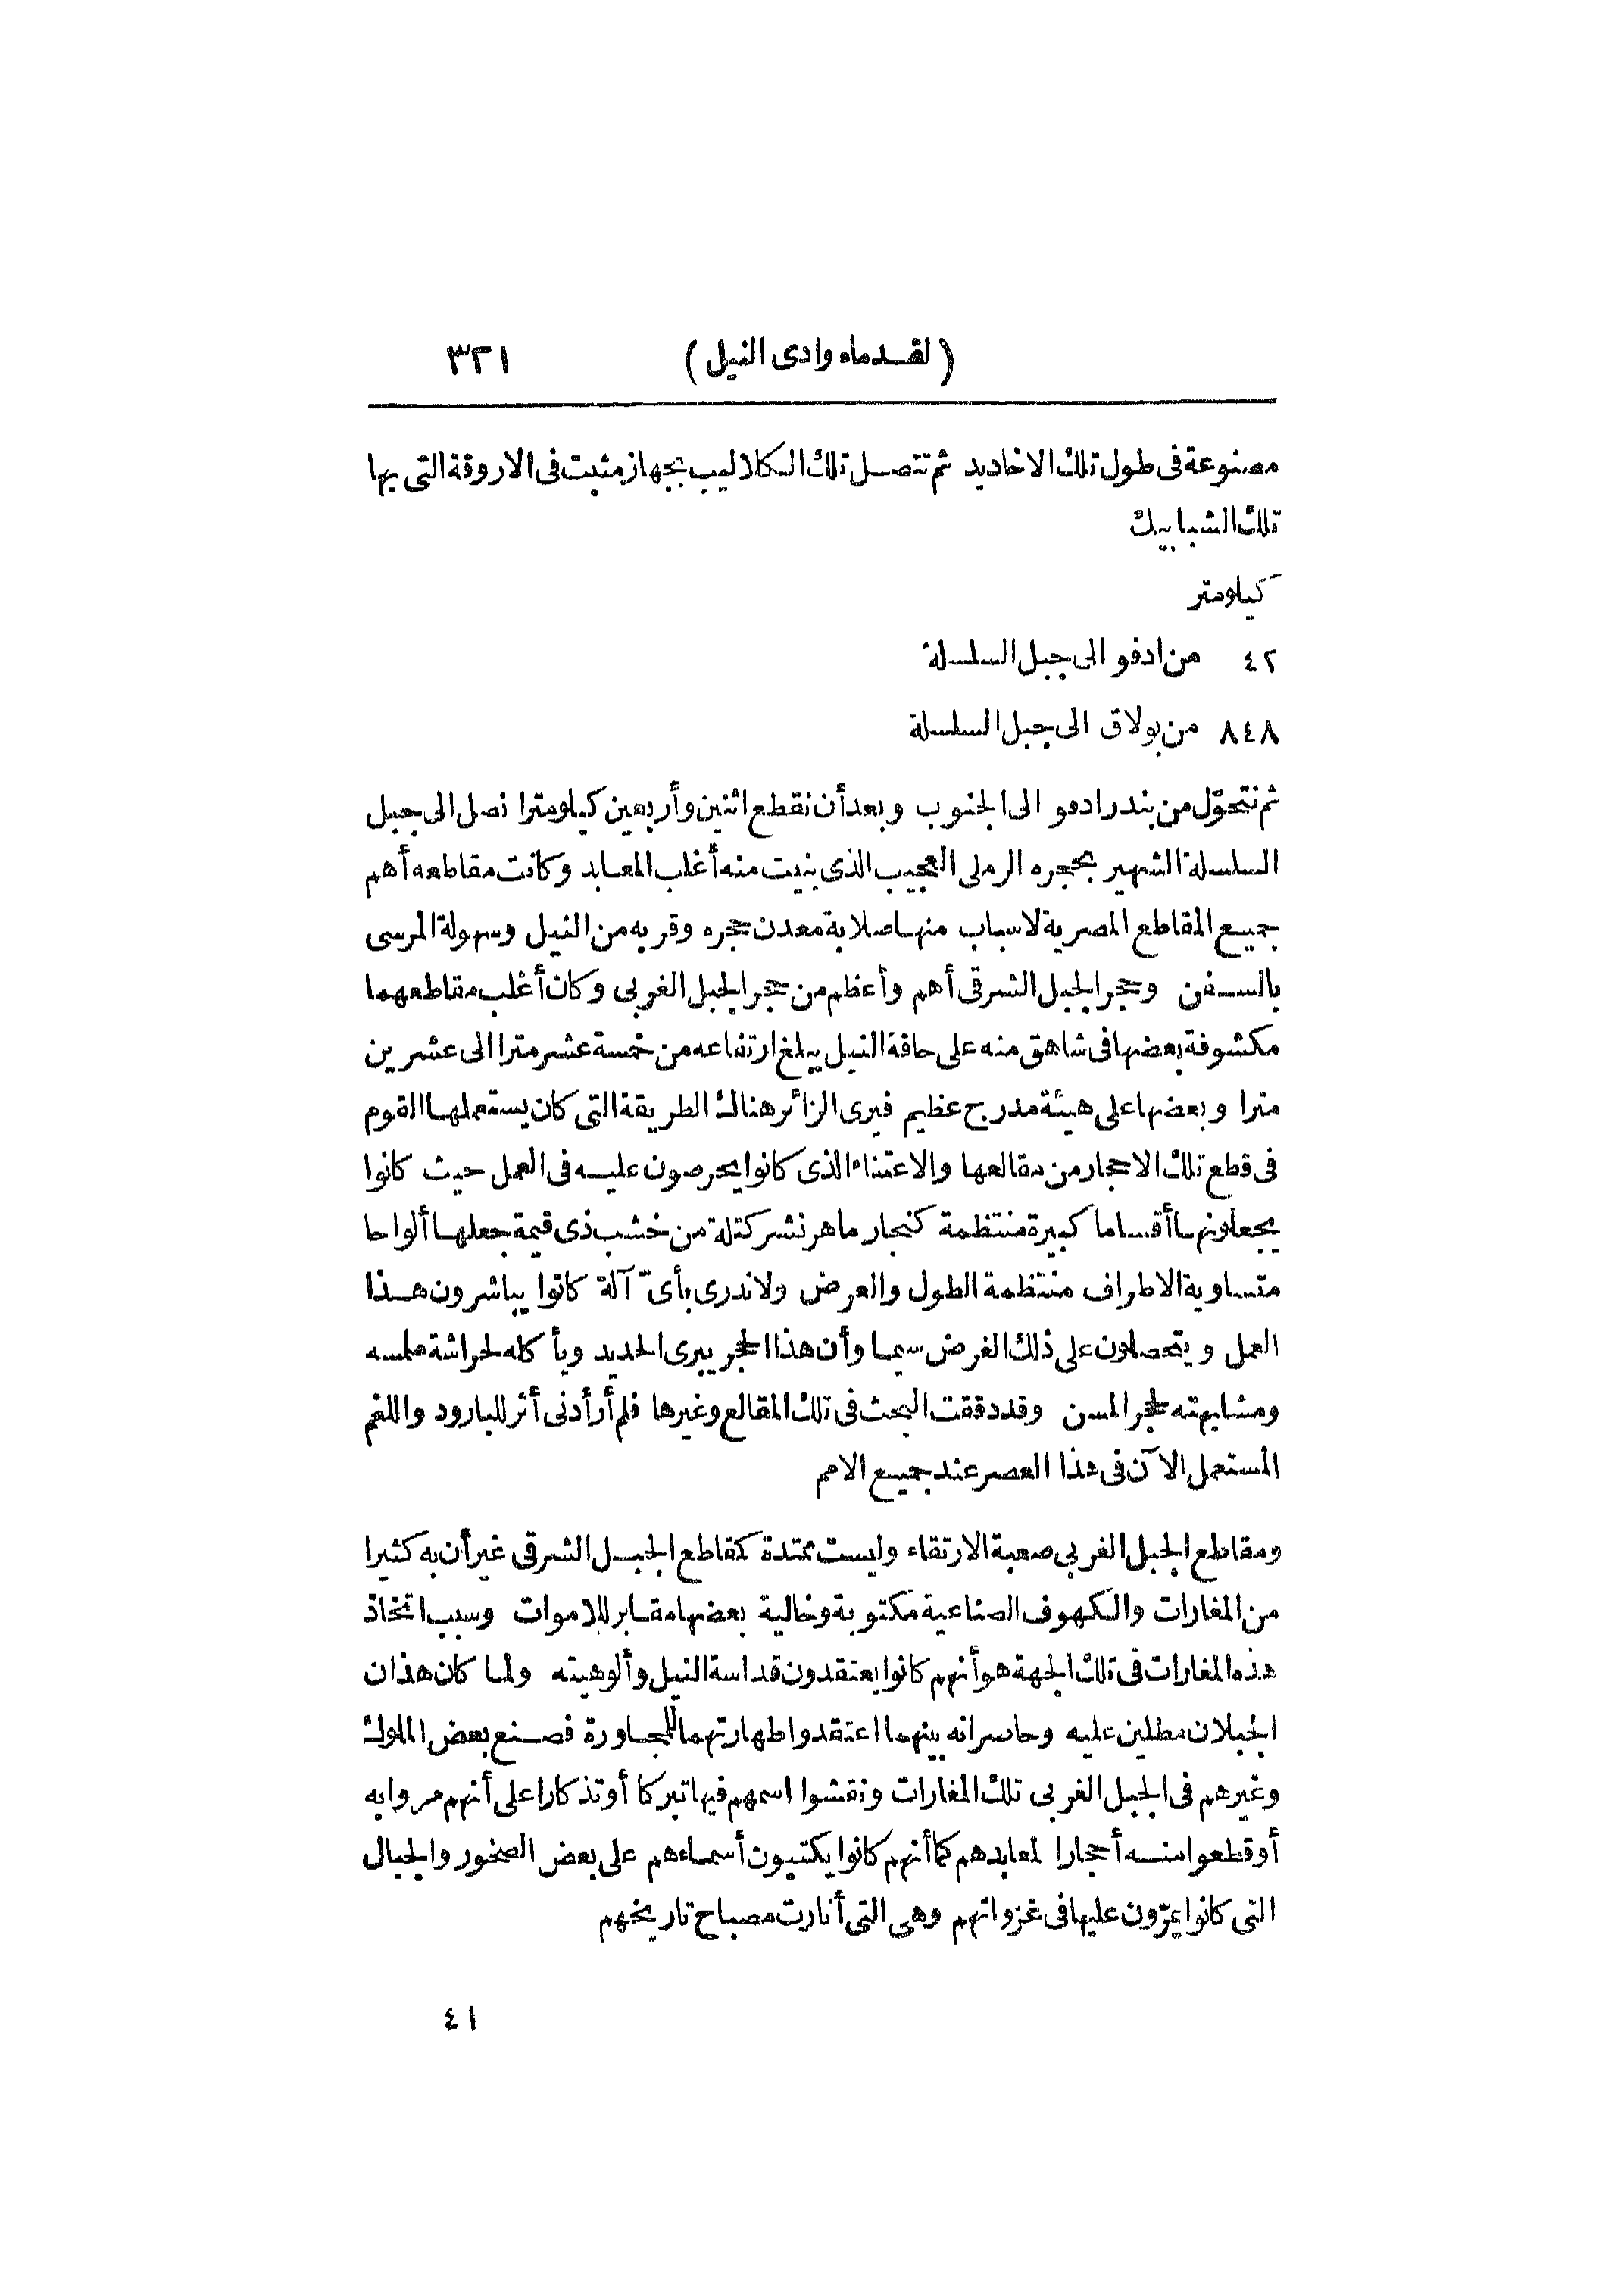 (لقدماء وادى النيل) ٣٢١
مصنوعة فى طول تلك الاخاديد ثم تتصل تلك الكلاليب بجهاز مثبت فى الاروقة التى بها
تلك الشبابيك
كيلومتر
٤٢ من ادفو الى جبل السلسلة
٨٤٨ من بولاق الى جبل السلسلة
ثم نتحوّل من بندر ادفو الى الجنوب وبعد أن نقطع اثنين وأربعين كيلومترا نصل الى جبل
السلسلة الشهير بحجره الرملى العجيب الذى بنيت منه أغلب المعابد وكانت مقاطعه أهم
جميع المقاطع المصرية لاسباب منها صلابة معدن حجره وقربه من النيل وسهولة المرسى
بالسفن وحجر الجبل الشرقى أهم وأعظم من حجر الجبل الغربى وكان أغلب مقاطعهما
مكشوفة بعضها فى شاهق منه على حافة النيل يبلغ ارتفاعه من خمسة عشر مترا الى عشرين
مترا وبعضها على هيئة مدرج عظيم فيرى الزائر هناك الطريقة التى كان يستعملها القوم
فى قطع تلك الاحجار من مقالعها والاعتناء الذى كانوا يحرصون عليه فى العمل حيث كانوا
يجعلونها أقساما كبيرة منتظمة كنجار ماهر نشر كتلة من خشب ذى قيمة جعلها ألواحا
متساوية الاطراف منتظمة الطول والعرض ولا ندرى بأىّ آلة كانوا يباشرون هذا
العمل ويتحصلون على ذلك الغرض سيما وأن هذا الحجر يبرى الحديد ويأكله لخراشة ملسه
ومشابهته لحجر المسن وقد دققت البحث فى تلك المقالع وغيرها فلم أر أدنى أثر للبارود واللغم
المستعمل الآن فى هذا العصر عند جميع الامم
ومقاطع الجبل الغربى صعبة الارتقاء وليست ممتدة كمقاطع الجبل الشرقى غير أن به كثيرا
من المغارات والكهوف الصناعية مكتوبة وخالية بعضها مقابر للاموات وسبب اتخاذ
هذه المغارات فى تلك الجهة هو أنهم كانوا يعتقدون قداسة النيل وألوهيته ولما كان هذان
الجبلان مطلين عليه وحاصرانه بينهما اعتقدوا طهارتهما للمجاورة فصنع بعض الملوك
وغيرهم فى الجبل الغربى تلك المغارات ونقشوا اسمهم فيها تبركا أو تذكارا على أنهم مروا به
أو قطعوا منه أحجارا لمعابدهم كما أنهم كانوا يكتبون أسماءهم على بعض الصخور والجبال
التى كانوا يمرّون عليها فى غزواتهم وهى التى أنارت مصباح تاريخهم
٤١